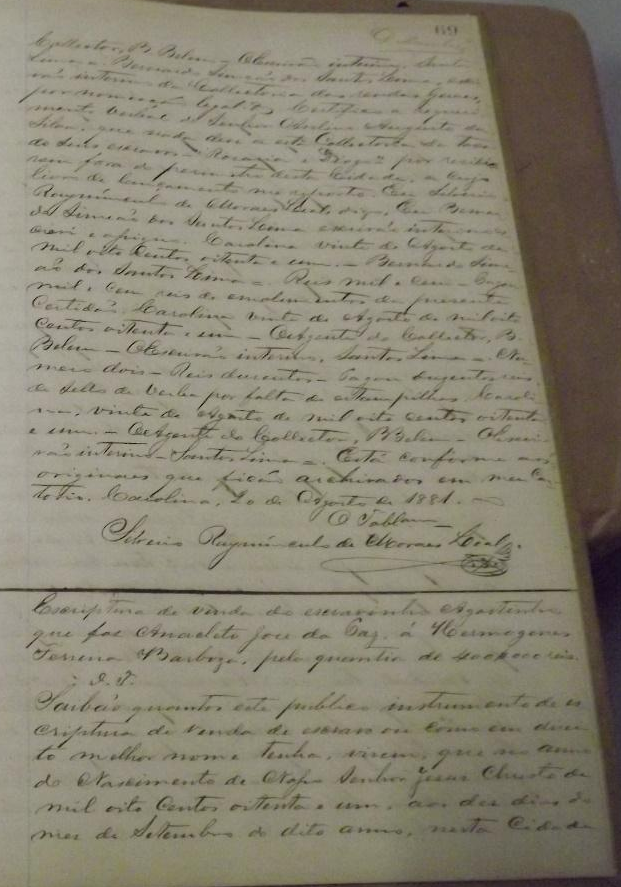 69
Collector, B. Belem - O Escrivão interino, Santos
Lima =. Bernardo Simeão dos Santos Lima, escri-
vão interino da Collectoria das rendas Geraes,
por nomeação legal &. Certifico a requeri-
mento verbal do Senhor Antonio Augusto da
Silva, que nada deve a esta Collectoria da taxa
de seus escravos - e por residi-
rem fora do perimetro desta Cidade, a cujo
livro de lançamento me reporto. Eu Silverio
Raymundo de Moraes Leal, digo, Eu Bernar-
do Simeão dos Santos Lima escrivão interino es-
crevi e assigno. Carolina vinte de Agosto de
mil oito Centos oitenta e um. - Bernardo Sime-
ão dos Santos Lima =. Reis mil e cem - Pagou
mil e cem reis de emolumentos da presente
Certidão. Carolina vinte de Agosto de mil oito
Centos oitenta e um - O Agente do Collector, B.
Belem - O Escrivão interino, Santos Lima =. Nu-
mero dois - Reis duzentos - Pagou duzentos reis
de sello de verba por falta de estampilhas. Caroli-
na, vinte de Agosto de mil oito centos oitenta
e um. - O Agente do Collector, B. Belem - O Escri-
vão interino - Santos Lima =. Está conforme aos
originaes que ficão archivados em meu Car-
torio. Carolina, 20 de Agosto de 1881. -
O Tabbam
Silverio Raymundo de Moraes Leal.
Escriptura de venda do escravinho Agostinho
que faz Anacleto Jose da Paz, á Hermogenes
Ferreira Barboza, pela quantia de 400#000 reis.
Saibão quantos este publico instrumento de es
criptura de venda de escravo ou como em direi
to melhor nome tenha, virem, que no anno
do Nascimento de Nosso Senhor Jesus Christo de
mil oito Centos oitenta e um, aos dez dias do
mez de Setembro do dito anno, nesta Cidade